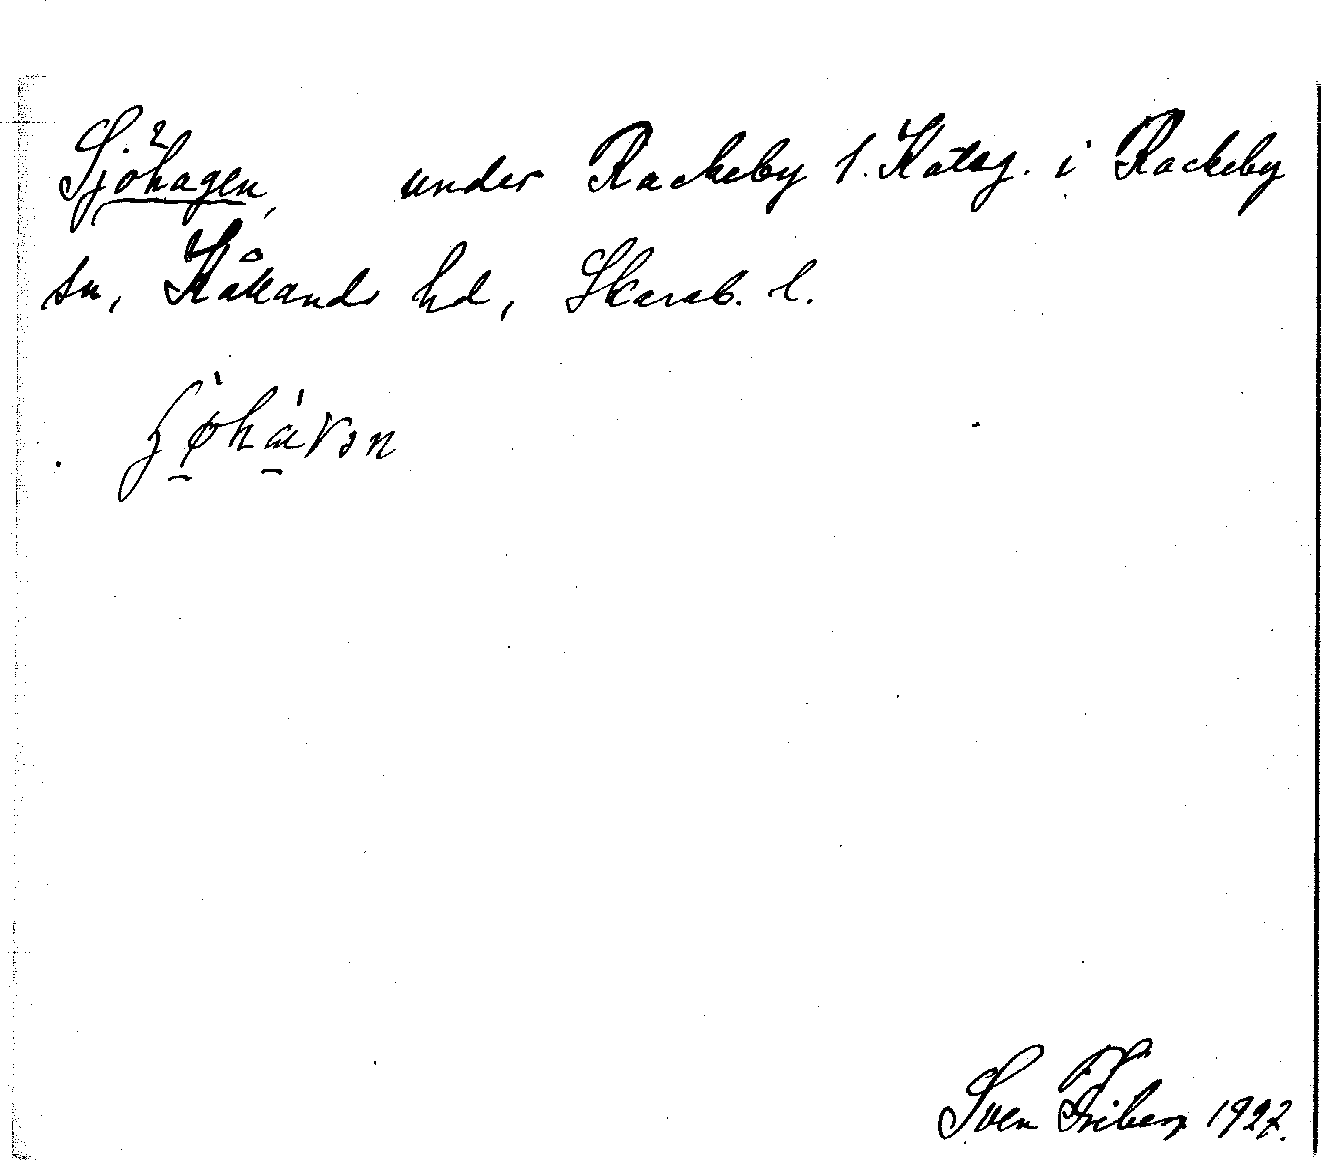 Sjöhagen, under Rackeby 1. Katsg. i Rackeby
sn, Kållands hd, Skarab. l.
Sven Friberg 1927.